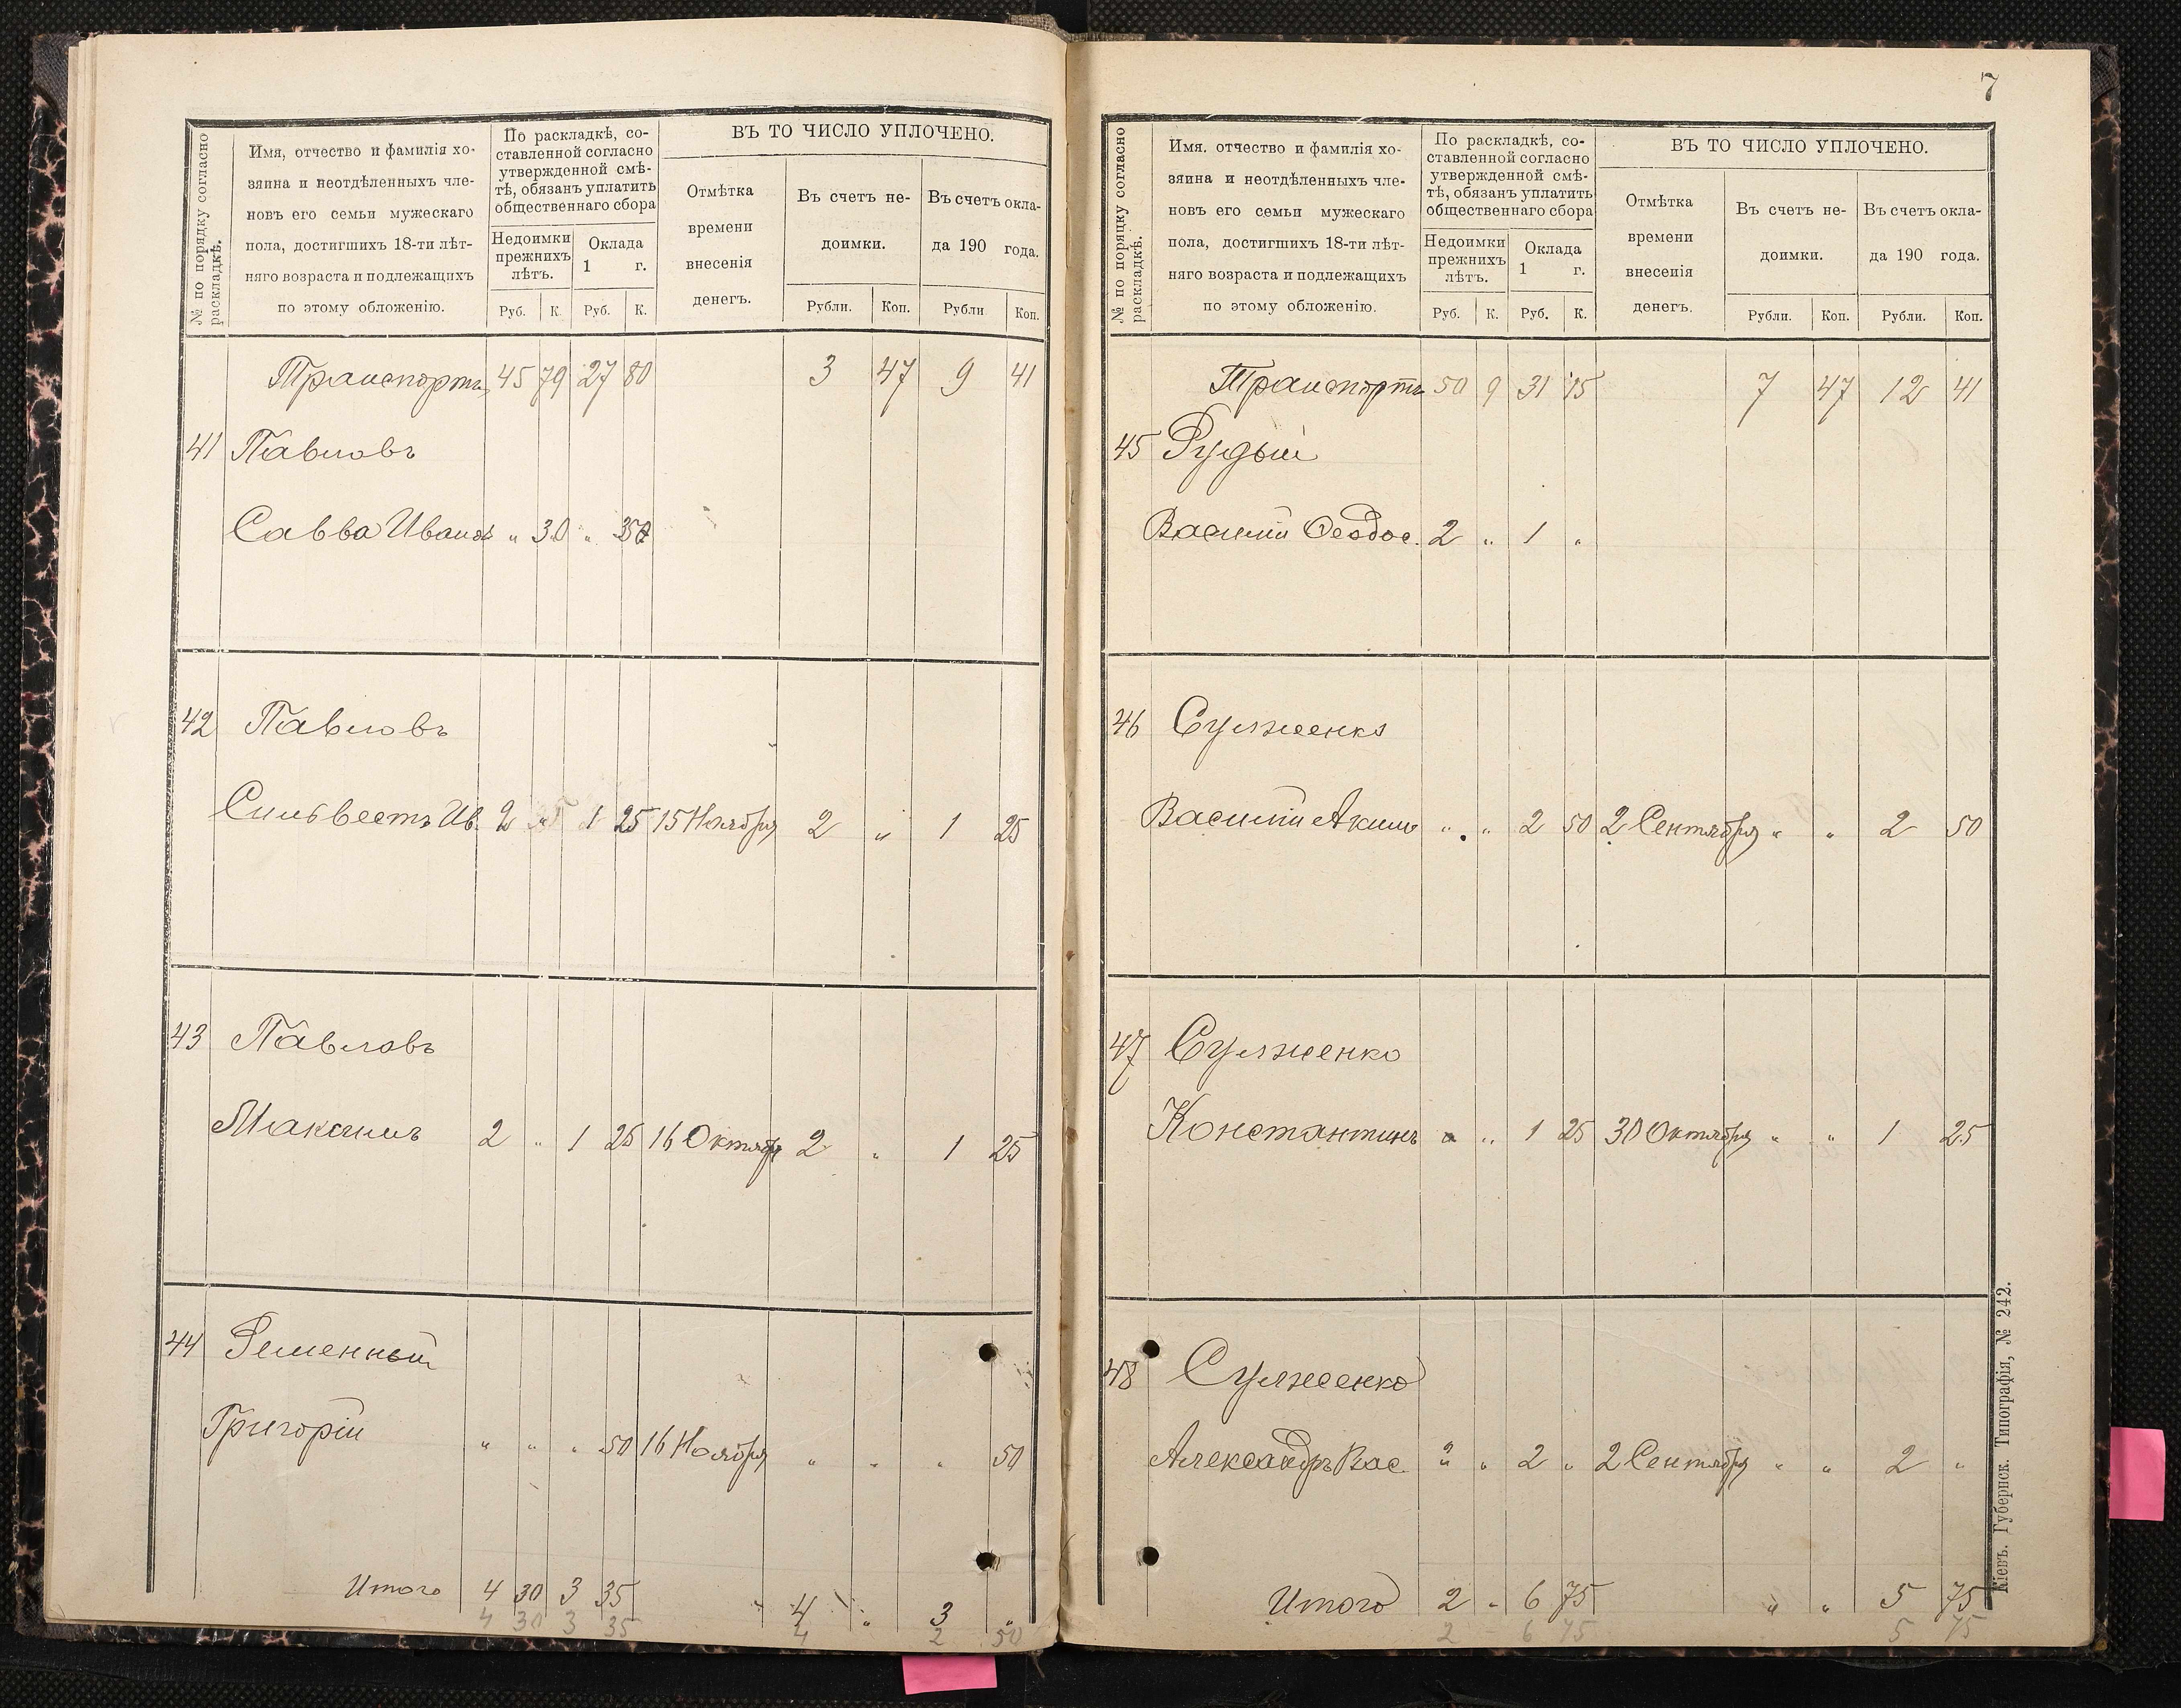 № по порядку согласно раскладкѣ.
Имя, отчество и фамилія хо-
зяина и неотдѣленныхъ чле-
новъ его семьи мужескаго
пола, достигшихъ 18-ти лѣт-
няго возраста и подлежащихъ
по этому обложенію.
По раскладкѣ, со-
ставленной согласно
утвержденной смѣ-
тѣ, обязанъ уплатить
общественнаго сбора
Недоимки
прежнихъ
лѣтъ.
Оклада
1 г.
Руб. К. Руб. К.
ВЪ ТО ЧИСЛО УПЛОЧЕНО.
Отмѣтка
времени
внесенія
денегъ.
Въ счетъ не-
доимки.
Въ счетъ окла-
да 190 года.
Рубли. Коп. Рубли Коп.
Транспортъ 45 79 27 80 3 47 9 41
41 Павловъ
Савва Иванов „ 30 „ 35
42 Павловъ
Сильвестъ Ив. 2 „ 1 25 15 Ноября 2 „ 1 25
43 Павловъ
Максимъ 2 „ 1 25 16 Октября 2 „ 1 25
44 Ременный
Григорій „ „ „ 50 16 Ноября „ „ „ 50
Итого 4 30 3 35 „ 4 „ 3 „
4 30 3 35 4 2 50
7
№ по порядку согласно раскладкѣ.
Имя. отчество и фамилія хо-
зяина и неотдѣленныхъ чле-
новъ его семьи мужескаго
пола, достигшихъ 18-ти лѣт-
няго возраста и подлежащихъ
по этому обложенію.
По раскладкѣ, со-
ставленной согласно
утвержденной смѣ-
тѣ, обязанъ уплатить
общественнаго сбора
Недоимки
прежнихъ
лѣтъ.
Оклада
1 г.
Руб. К. Руб. К.
ВЪ ТО ЧИСЛО УПЛОЧЕНО.
Отмѣтка
времени
внесенія
денегъ.
Въ счетъ не-
доимки.
Въ счетъ окла-
да 190 года.
Рубли. Коп. Рубли. Коп.
Транспортъ 50 9 31 15 7 47 12 41
45 Рудый
Василій Ѳеодос. 2 „ 1 „
46 Сулженко
Василій Акимъ „ „ 2 50 2 Сентября „ „ 2 50
47 Сулженко
Константинъ „ „ 1 25 30 Октября „ „ 1 25
48 Сулженко
Александръ Вас. „ „ 2 „ 2 Сентября „ „ 2 „
Итого 2 „ 6 75 „ „ 5 75
2 - 6 75 5 75
Кіевъ. Губернск. Типографія, № 242.